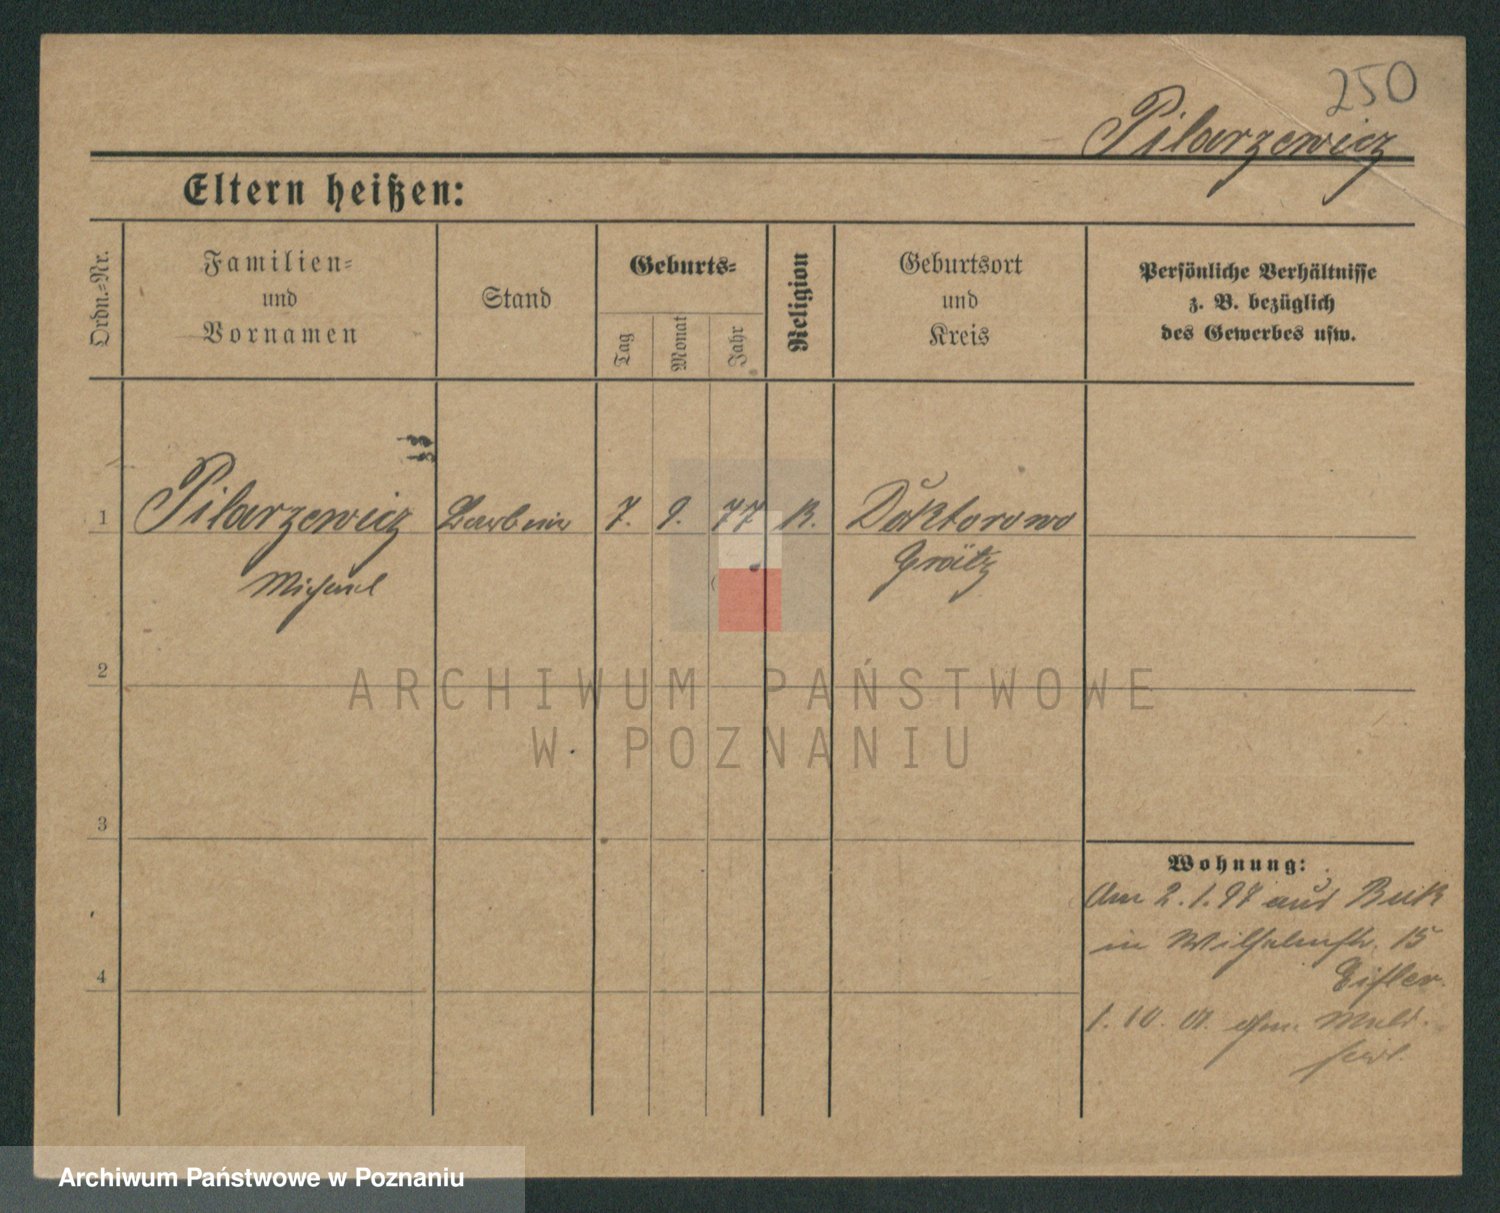 250
Pilarzewicz
Eltern heißen:
Ordn.=Nr.
Familien=
und
Vornamen
Stand
Geburts=
Tag
Monat
Jahr
Religion
Geburtsort
und
Kreis
Persönliche Verhältnisse
z. B. bezüglich
des Gewerbes usw.
1 Pilarzewicz 7. 9. 77 K. Doktorowo
Michael
Grätz
2
ARCHIWUM PAŃSTWOWE
W POZNANIU
3
Wohnung:
Am 2.1.97 aus Buk
in Wilhelmstr. 15
4
1. 10. 01. ohne Meld.
Archiwum Państwowe w Poznaniu